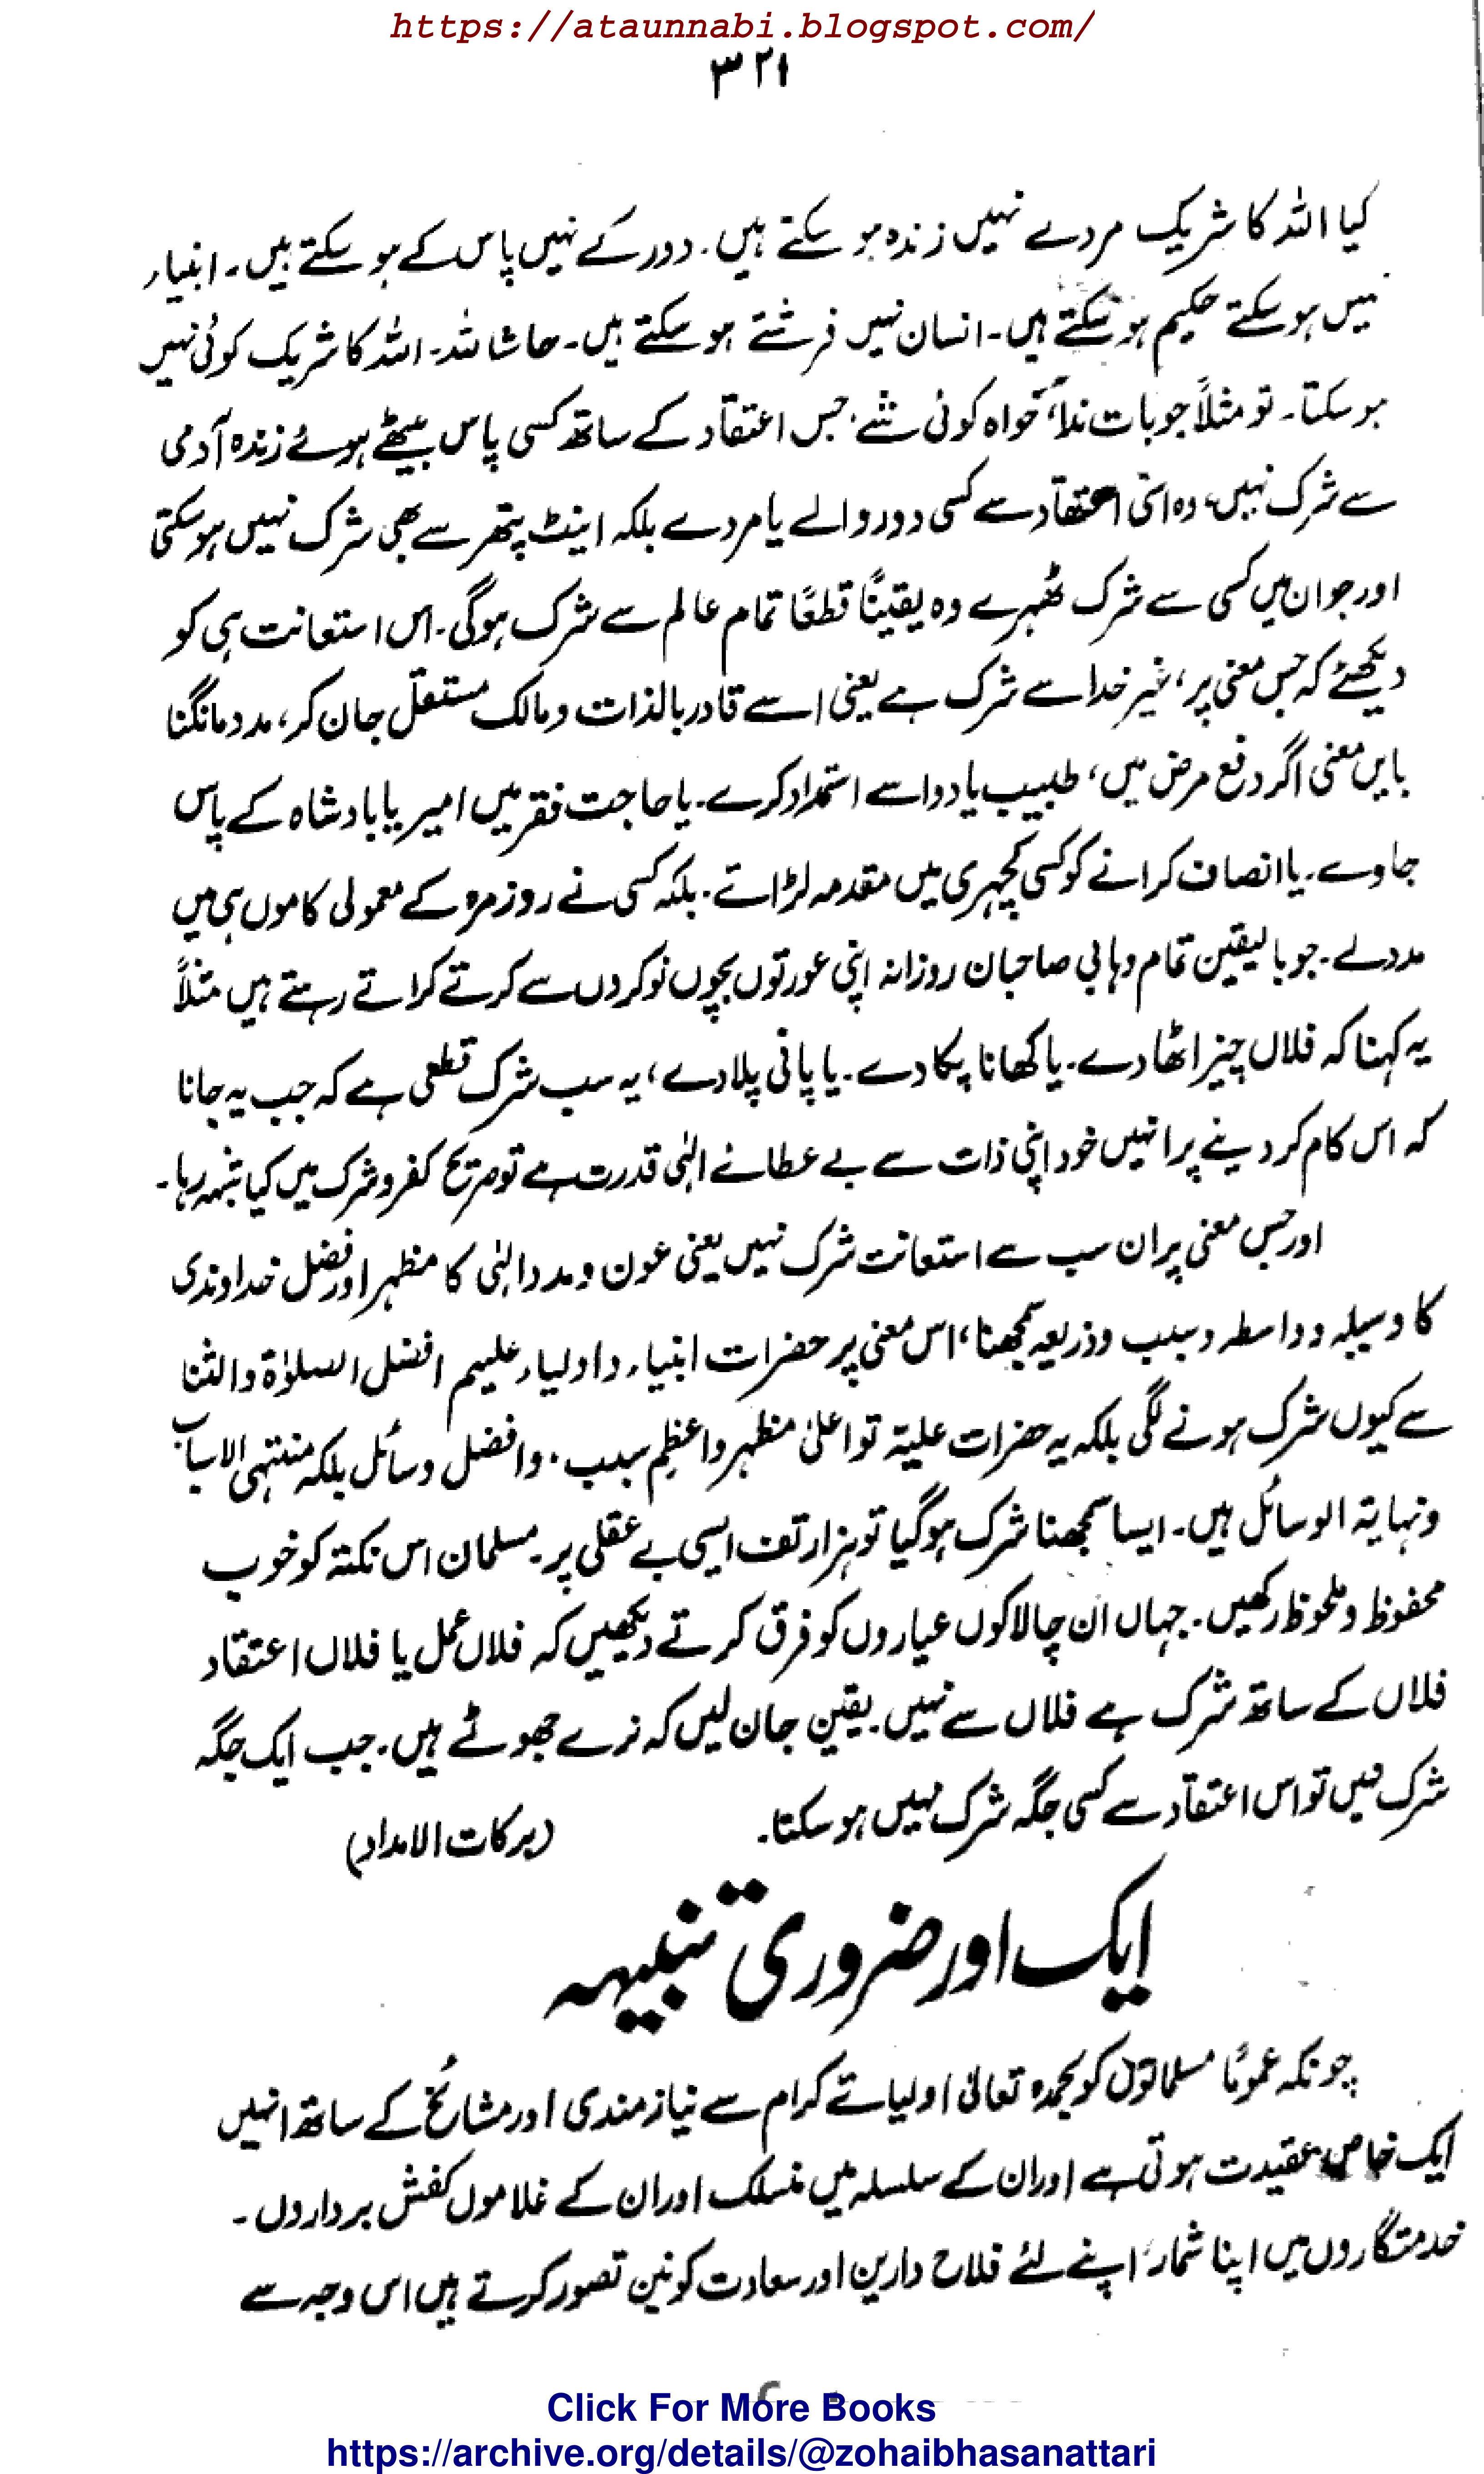 https://ataunnabi.blogspot.com/
۳۲۱
کیا اللہ کا شریک مردے نہیں زندہ ہو سکتے ہیں۔ دور کے نہیں پاس کے ہو سکتے ہیں۔ انبیاء
نہیں ہو سکتے حکیم ہو سکتے ہیں۔ انسان نہیں فرشتے ہو سکتے ہیں۔ حاشا للہ۔ اللہ کا شریک کوئی نہیں
ہو سکتا۔ تو مثلاً جو بات ندا، خواہ کوئی شئے، جس اعتقاد کے ساتھ کسی پاس بیٹھے ہوئے زندہ آدمی
سے شرک نہیں، وہ اسی اعتقاد سے کسی دور والے یا مردے بلکہ اینٹ پتھر سے بھی شرک نہیں ہو سکتی
اور جو ان میں کسی سے شرک ٹھہرے وہ یقیناً قطعًا تمام عالم سے شرک ہوگی۔ اس استعانت ہی کو
دیکھئے کہ جس معنی پر، غیر خدا سے شرک ہے یعنی اسے قادر بالذات و مالک مستقل جان کر، مدد مانگنا
بایں معنی اگر دفع مرض میں، طبیب یا دوا سے استمداد کرے۔ یا حاجت فقر میں امیر یا بادشاہ کے پاس
جاوے۔ یا انصاف کرانے کو کسی کچہری میں مقدمہ لڑائے۔ بلکہ کسی نے روزمرہ کے معمولی کاموں ہی میں
مدد لے۔ جو بالیقین تمام وہابی صاحبان روزانہ اپنی عورتوں بچوں نوکروں سے کرتے کراتے رہتے ہیں مثلاً
یہ کہنا کہ فلاں چیز اٹھا دے۔ یا کھانا پکا دے۔ یا پانی پلا دے، یہ سب شرک قطعی ہے کہ جب یہ جانا
کہ اس کام کر دینے پر انہیں خود اپنی ذات سے بے عطائے الٰہی قدرت ہے تو صریح کفر و شرک میں کیا شبہہ رہا۔
اور جس معنی پر ان سب سے استعانت شرک نہیں یعنی عون و مدد الٰہی کا مظہر اور فضل خداوندی
کا وسیلہ و واسطہ و سبب و ذریعہ سمجھنا، اس معنی پر حضرات انبیاء و اولیاء علیہم افضل الصلوٰۃ والثنا
سے کیوں شرک ہونے لگی بلکہ یہ حضرات علیۃ تو اعلیٰ مظہر و اعظم سبب۔ و افضل وسائل بلکہ منتہی الاسباب
و نہایۃ الوسائل ہیں۔ ایسا سمجھنا شرک ہوگیا تو ہزار تف ایسی بے عقلی پر۔ مسلمان اس نکتہ کو خوب
محفوظ و ملحوظ رکھیں۔ جہاں ان چالاکوں عیاروں کو فرق کرتے دیکھیں کہ فلاں عمل یا فلاں اعتقاد
فلاں کے ساتھ شرک ہے فلاں سے نہیں۔ یقین جان لیں کہ نرے جھوٹے ہیں۔ جب ایک جگہ
شرک نہیں تو اس اعتقاد سے کسی جگہ شرک نہیں ہو سکتا۔ (برکات الامداد)
ایک اور ضروری تنبیہہ
چونکہ عمومًا مسلمانوں کو بحمدہ تعالیٰ اولیائے کرام سے نیازمندی اور مشائخ کے ساتھ انہیں
ایک خاص عقیدت ہوتی ہے اور ان کے سلسلہ میں منسلک اور ان کے غلاموں کفش برداروں۔
خدمتگاروں میں اپنا شمار، اپنے لئے فلاح دارین اور سعادت کونین تصور کرتے ہیں اس وجہ سے
Click For More Books
https://archive.org/details/@zohaibhasanattari